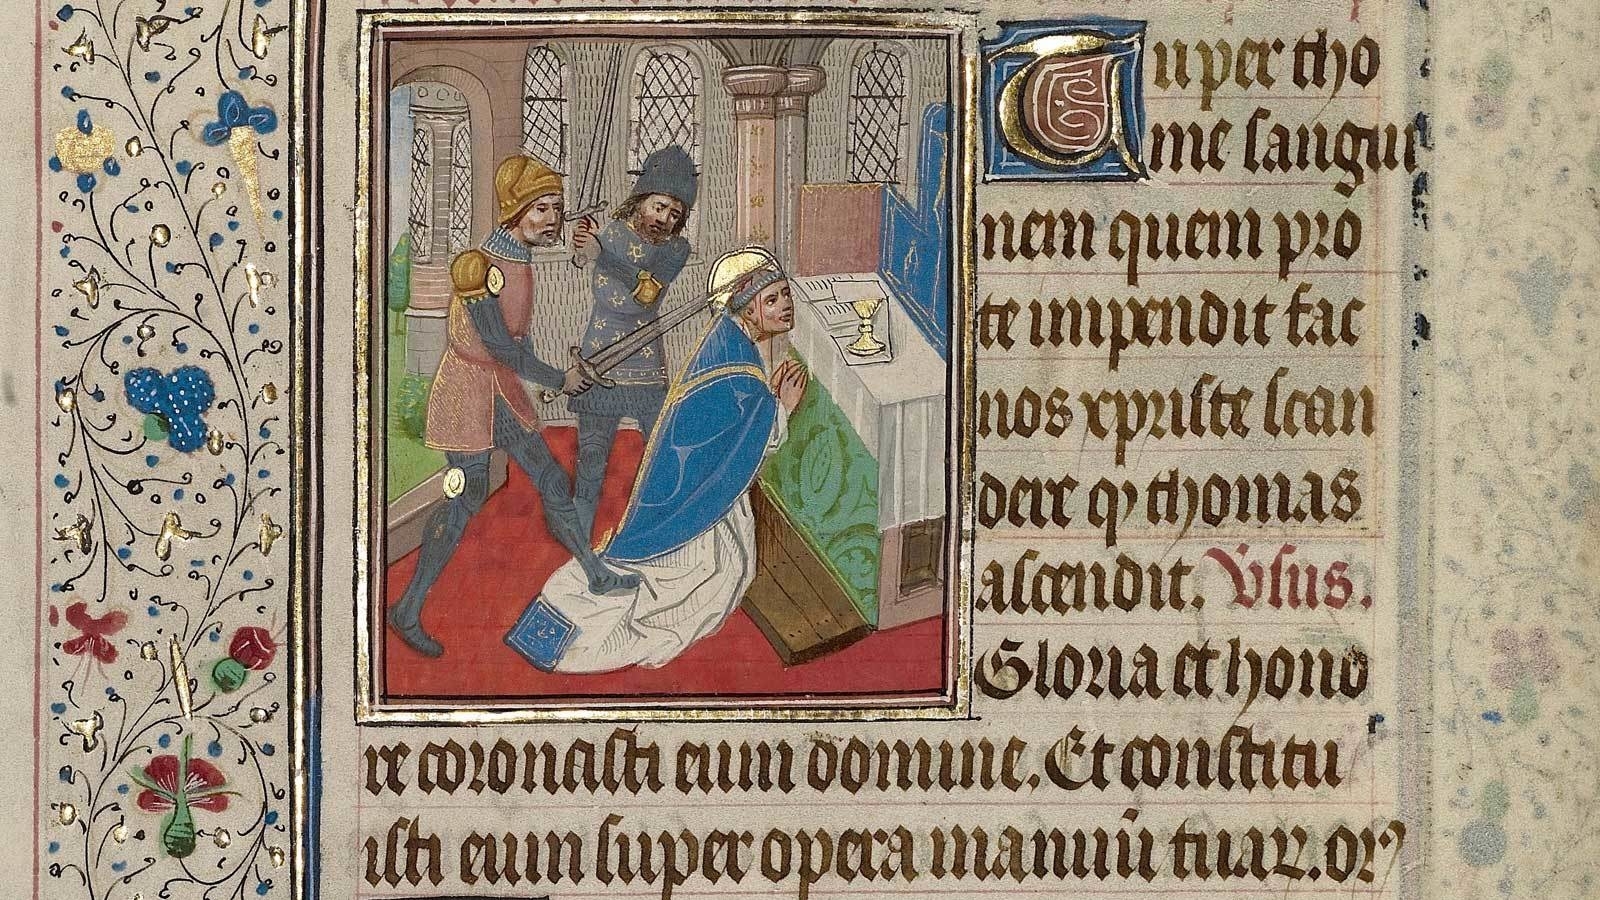 Tu per tho
me sangui
nem quem pro
te impendit fac
nos xpriste scan
dere q' thomas
ascendit. Vsus.
Gloria et hono
re coronasti eum domine. Et constitu
isti eum super opera manuū tuaꝝ. or'